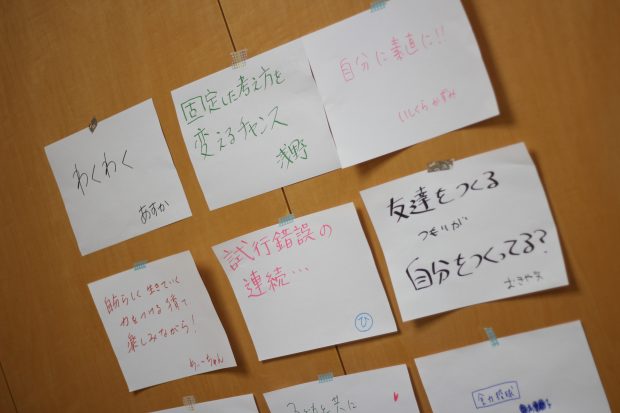 わくわく
あすか
固定した考え方を
変えるチャンス
浅野
自分に素直に!!
いしくらかずみ
自分らしく生きていく
力をつける場で
楽しみながら!
試行錯誤の
連続…
ひ
友達をつくる
つもりが
自分をつくってる?
子どもと共に
全力投球